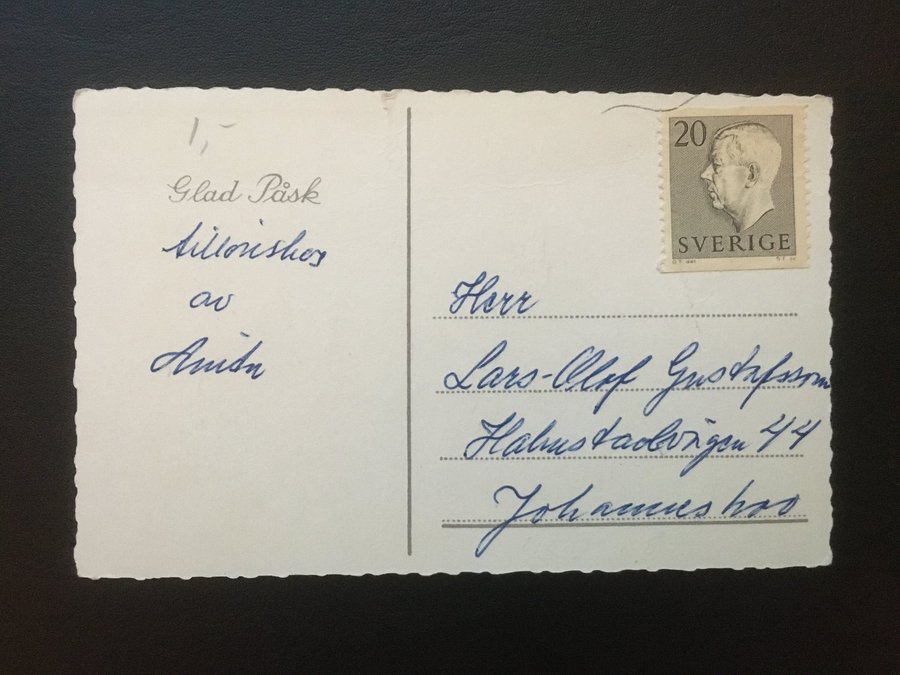 1,-
Glad Påsk
tillönskas
av
Anita
20
SVERIGE
Herr
Lars-Olof Gustafsson
Halmstadsvägen 44
Johanneshov